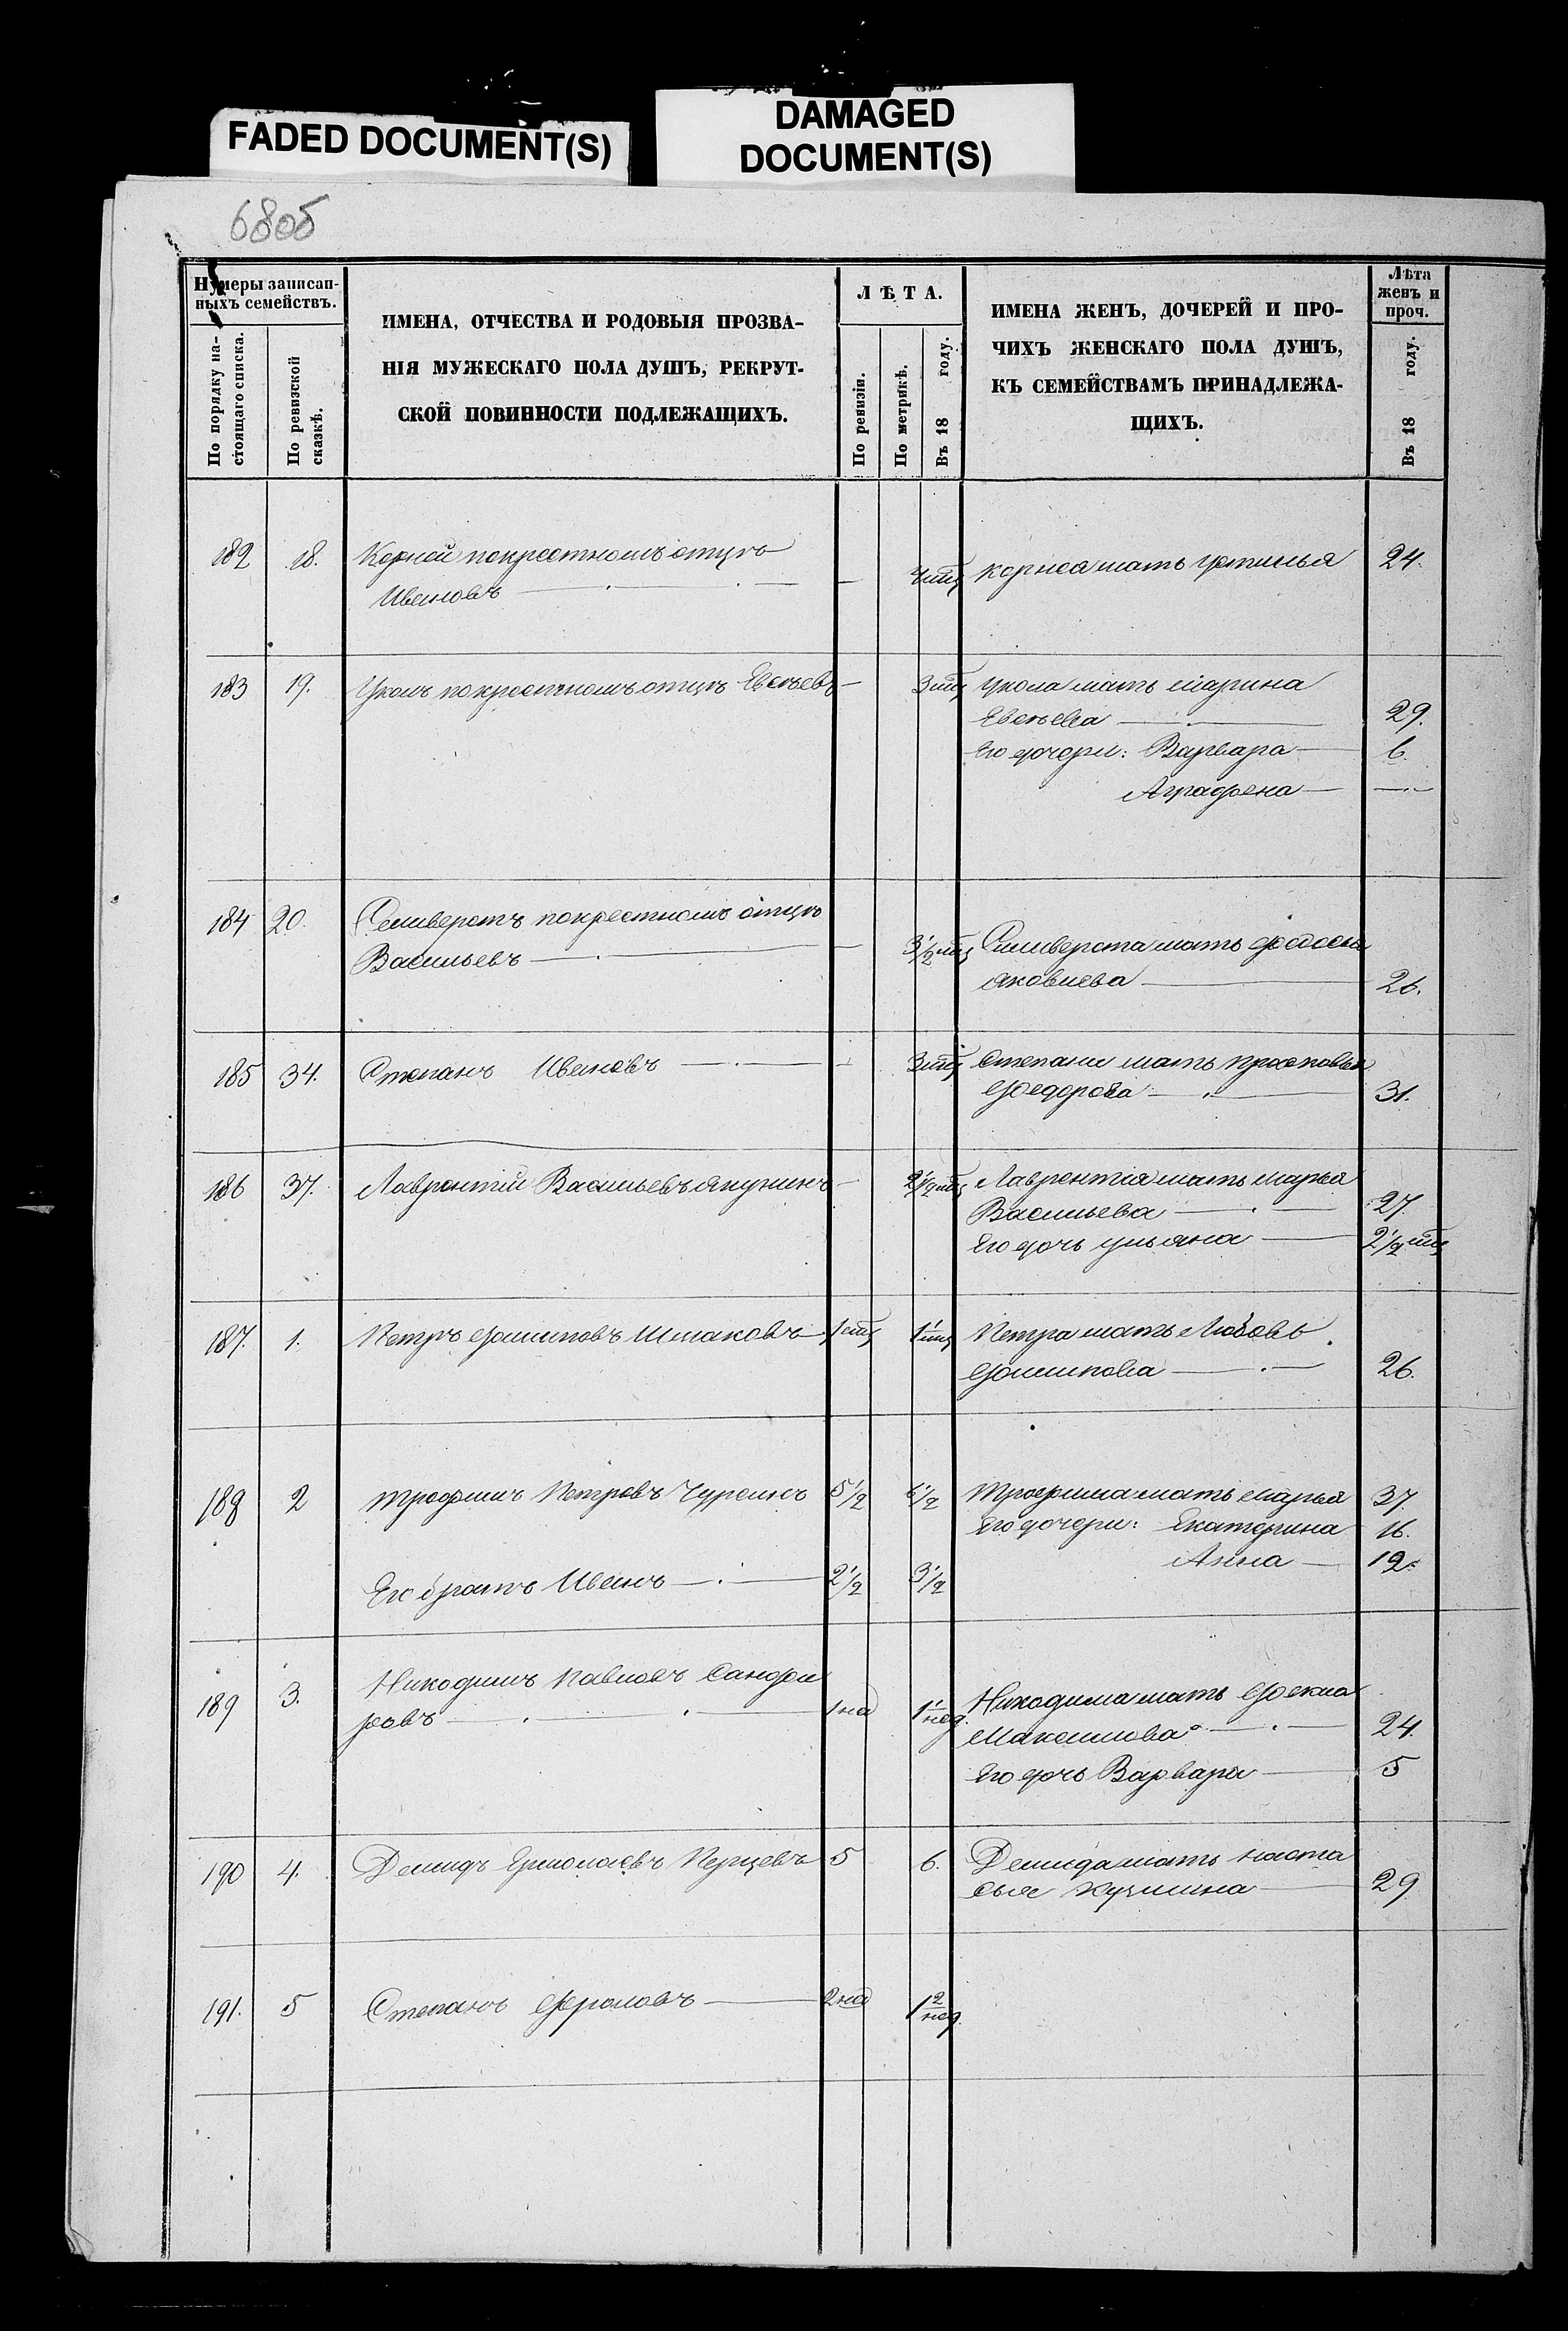 FADED DOCUMENT(S)
DAMAGED
DOCUMENT(S)
680б
Нумеры записан-
ныхъ семействъ.
По порядку на-
стоящаго списка.
По ревизской
сказкѣ.
ИМЕНА, ОТЧЕСТВА И РОДОВЫЯ ПРОЗВА-
НІЯ МУЖЕСКАГО ПОЛА ДУШЪ, РЕКРУТ-
СКОЙ ПОВИННОСТИ ПОДЛЕЖАЩИХЪ.
ЛѢТА.
По ревизіи.
По метрикѣ.
Въ 18 году.
ИМЕНА ЖЕНЪ, ДОЧЕРЕЙ И ПРО-
ЧИХЪ ЖЕНСКАГО ПОЛА ДУШЪ,
КЪ СЕМЕЙСТВАМЪ ПРИНАДЛЕЖА-
ЩИХЪ.
Лѣта
женъ и
проч.
Въ 18 году.
182 18. Корней покрестномъ отцѣ
Ивановъ — 4мц Корнея мать Устинья 24.
183 19. покрестномъ отцѣ Евсѣевъ — 3мц мать Марина
Евсѣева — 29.
Его дочери: Варвара — 6.
Аграфена —
184 20. Селиверстъ покрестномъ отцѣ
Васильевъ — 3 1/2 мц Силиверста мать Федосья
Яковлева — 26.
185 34. Степанъ Ивановъ — 3мц Степана мать Прасковья
Федорова — 31.
186 37. Лаврентій Васильевъ Якунинъ — 2 1/2 мц Лаврентія мать Марья
Васильева — 27.
Его дочь Ульяна — 2 1/2 мц
187. 1. Петръ Филиповъ Шмаковъ 1мц 1 1/мц Петра мать Любовь
Филипова — 26.
188 2 Трофимъ Петровъ Чуреинъ 5 1/2 6 1/2 Трофима мать Марья 37.
Его дочери: Екатерина 16.
Анна — 12.
Его братъ Иванъ — 2 1/2 3 1/2
189 3. Никодимъ Павловъ Санфи
ровъ — 1нед 1 1/нед. Никодима мать Фекла
Максимова — 24.
Его дочь Варвара — 5
190 4. Демидъ Ермолаевъ Перцевъ 5 6. Демида мать Наста
сья Кузмина — 29
191. 5 Степанъ Фроловъ — 2нед 1 2/нед.